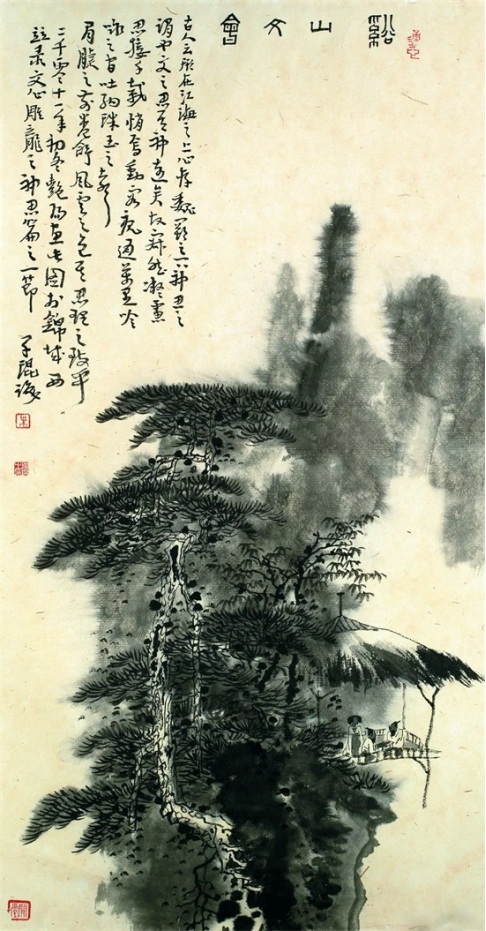 谿山文會
古人云形在江海之上心存魏闕之下神思之
謂也文之思其神遠矣故寂然凝慮
思接千載悄焉動容視通萬里吟
詠之間吐納珠玉之聲
眉睫之前卷舒風雲之色其思理之致乎
二千零十一年初冬艷陽畫此圖於錦城西
並录文心雕龍之神思篇之一節
子琨